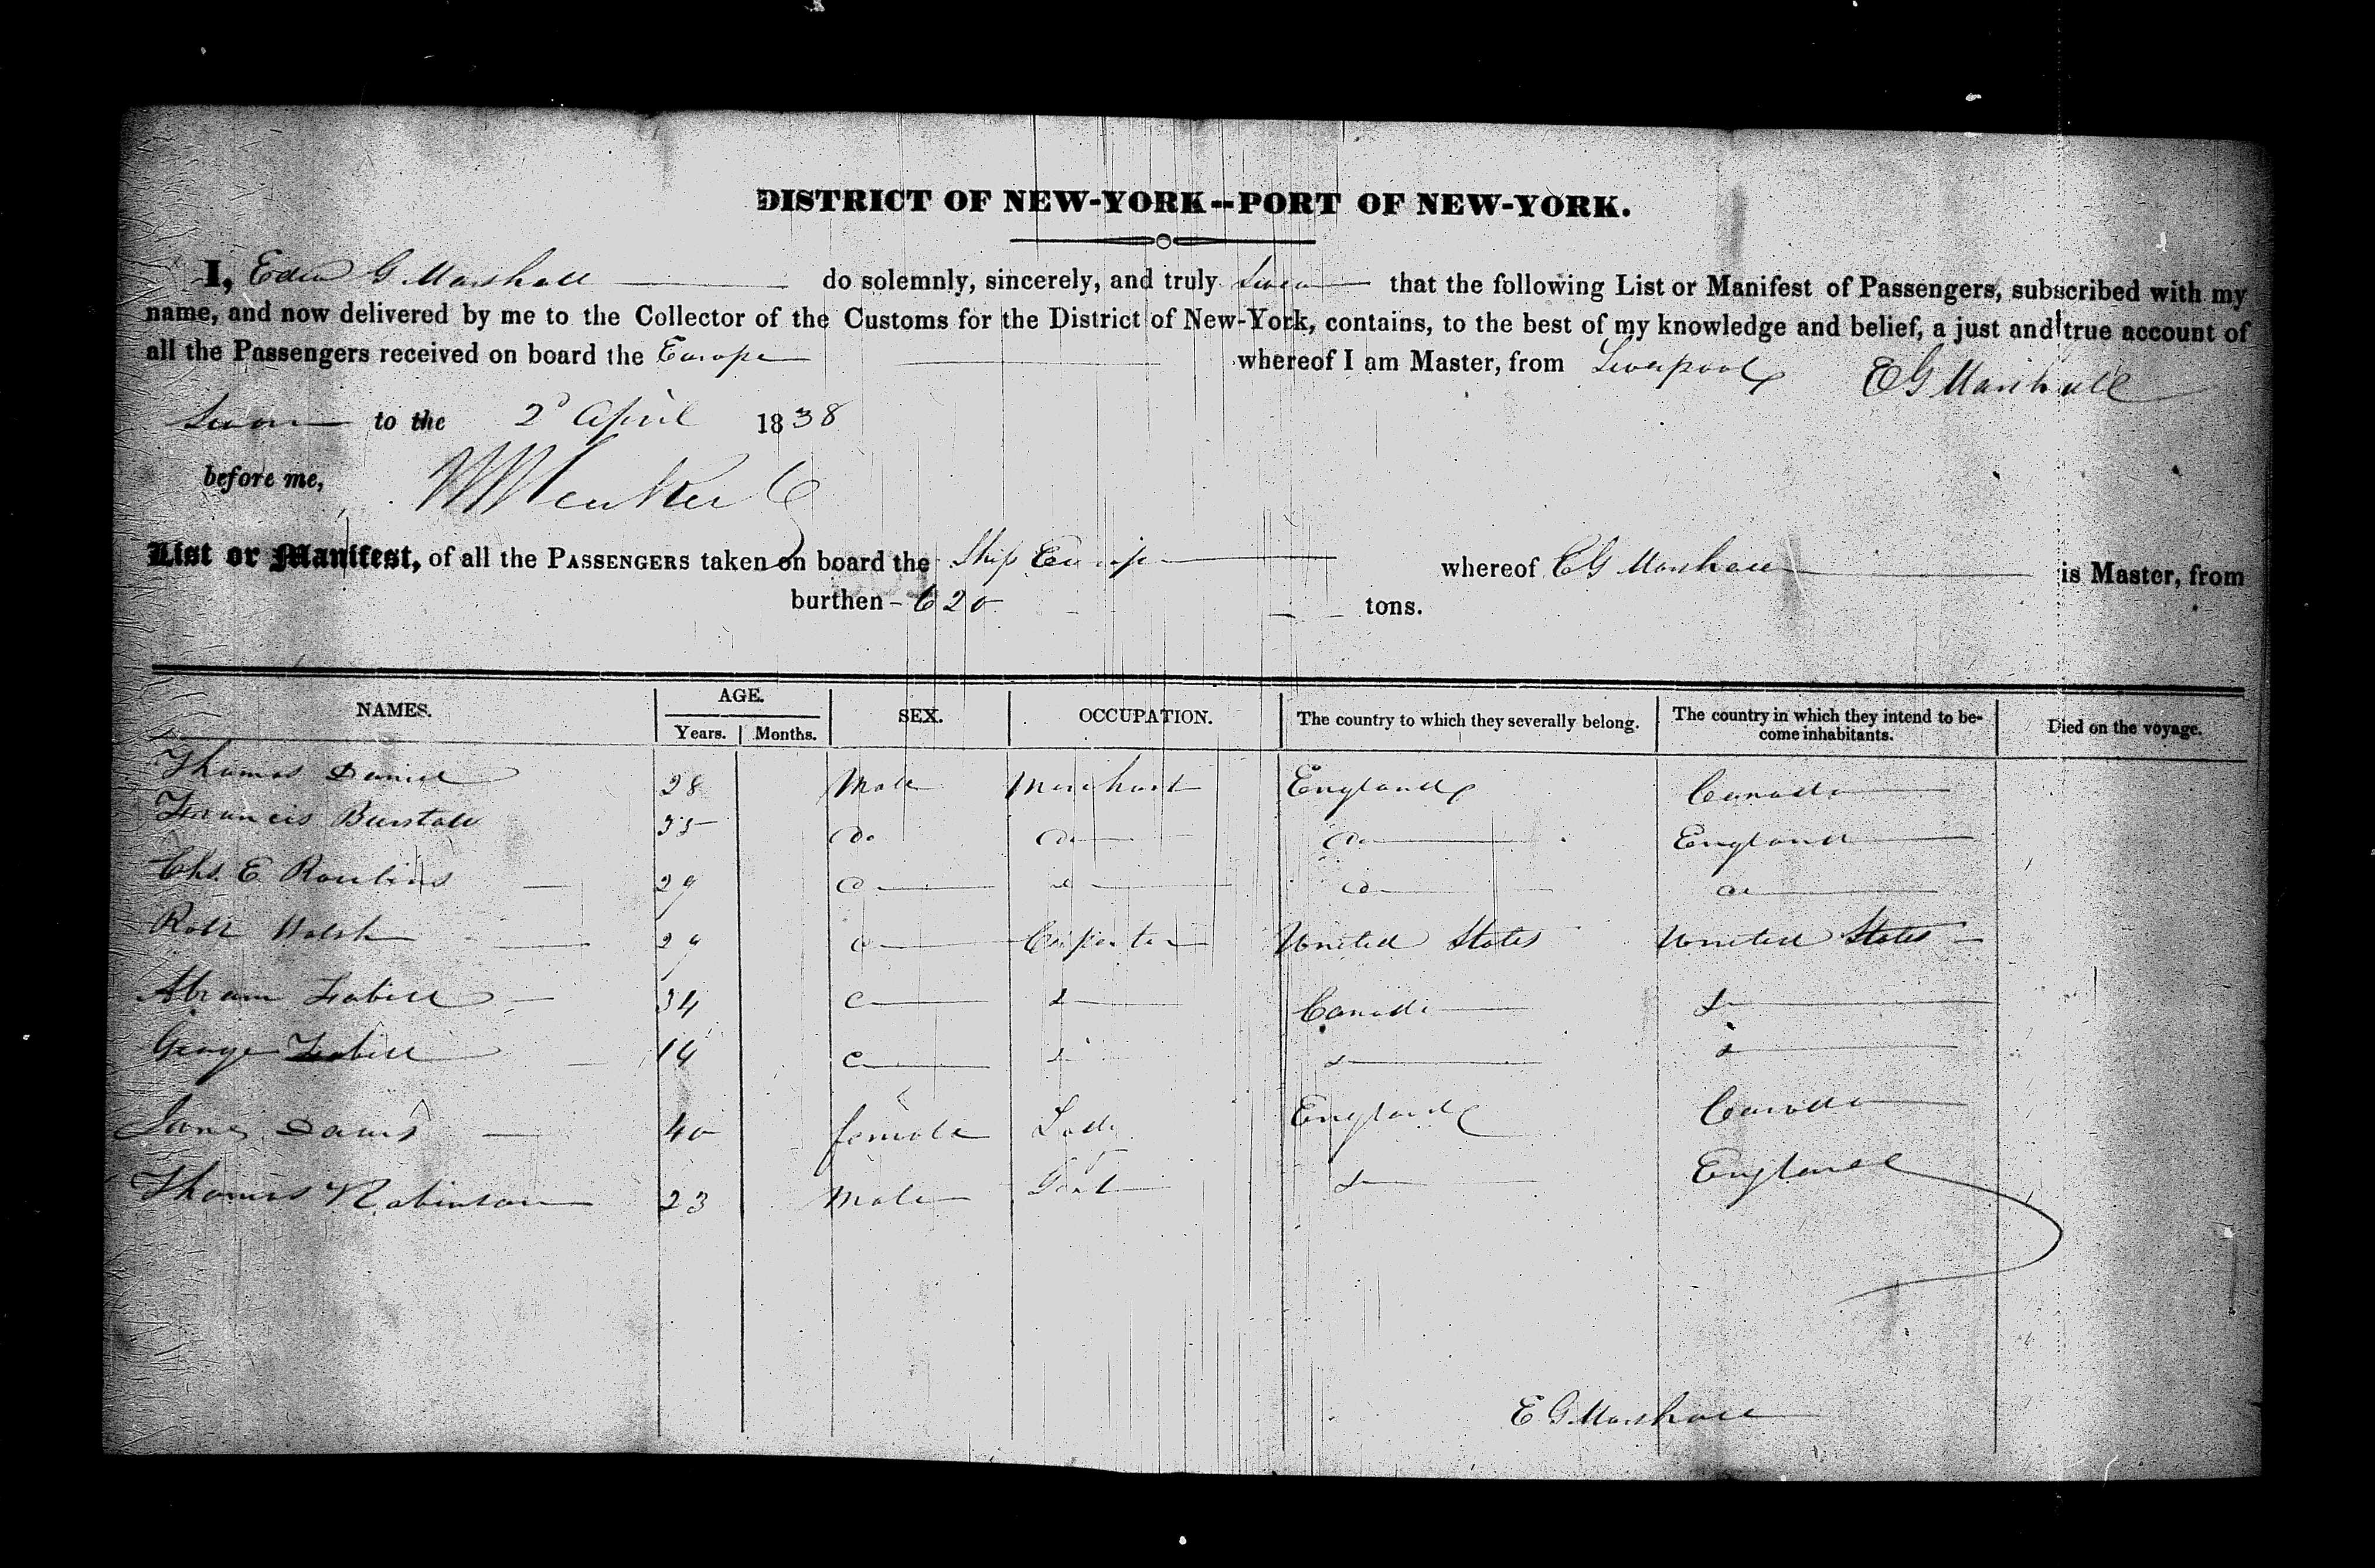 DISTRICT OF NEW-YORK--PORT OF NEW-YORK.
I, G Marshall do solemnly, sincerely, and truly swear that the following List or Manifest of Passengers, subscribed with my
name, and now delivered by me to the Collector of the Customs for the District of New-York, contains, to the best of my knowledge and belief, a just and true account of
all the Passengers received on board the Europe whereof I am Master, from Liverpool
E G Marshall
Sworn to the 2d April 1838
before me,
List or Manifest, of all the PASSENGERS taken on board the Ship Europe whereof E G Marshall is Master, from
burthen - 620 tons.
NAMES. AGE. Years. Months. SEX. OCCUPATION. The country to which they severally belong. The country in which they intend to become inhabitants. Died on the voyage.
Thomas Daniel 28 Male Merchant England Canada
Francis Burstall 35 do do do England
Chs. E Rawlins 29 do do do do
Robt Walsh 29 do Carpenter United States United States
Abram 34 do do Canada do
George 14 do do do do
Jane Davis 40 female Lady England Canada
Thomas Robinson 23 Male Gent do England
E G Marshall